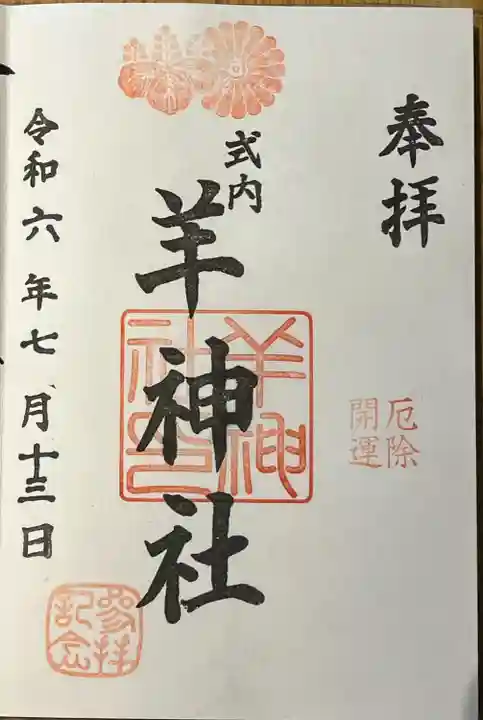 奉拝
厄除
開運
式内
羊神社
羊神
社印
令和六年七月十三日
参拝
記念